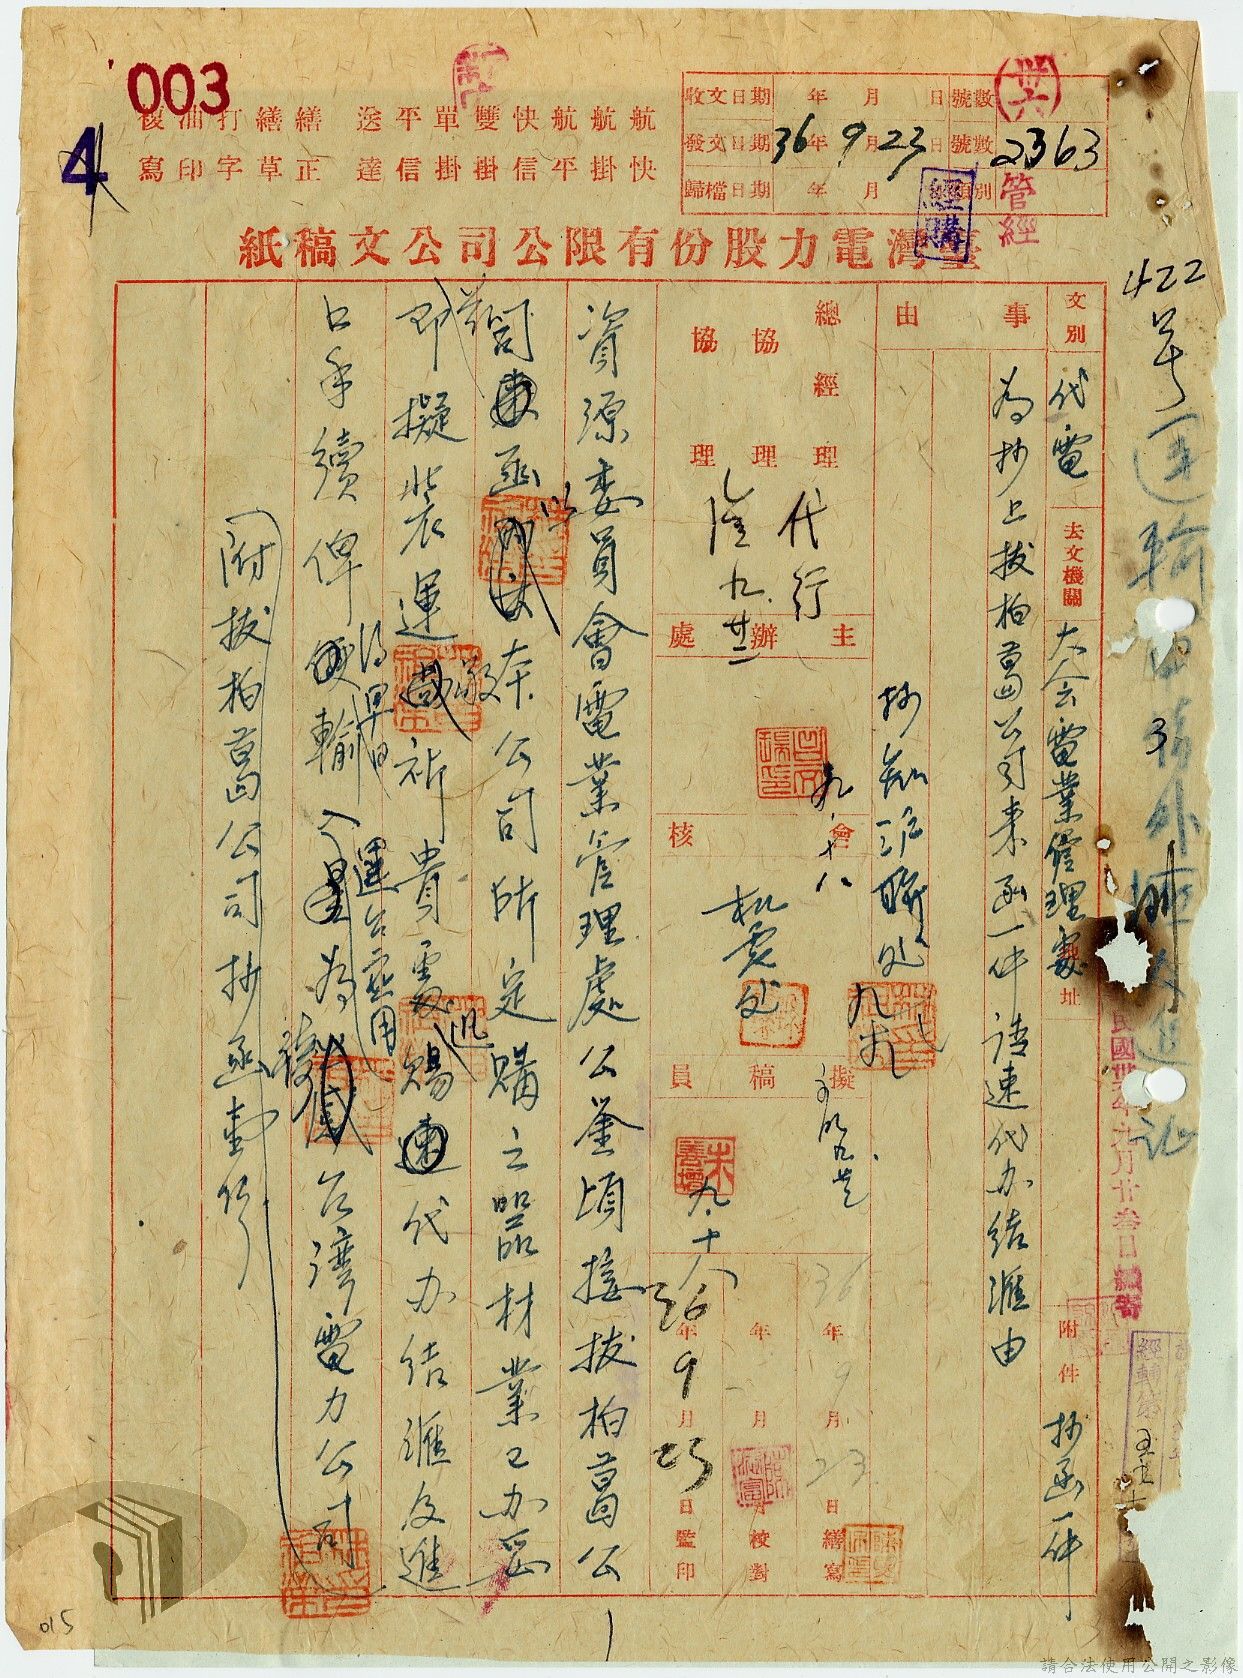 003
4
收文日期 年 月 日 號數
發文日期 36年9月23日 號數 2363
歸檔日期 年 月 別
管經
經購
航快
航掛
航平
快信
雙掛
單掛
平信
送達
繕正
繕草
打字
油印
複寫
臺灣電力股份有限公司公文稿紙
文別 代電
去文機關 大会電業管理處
址
附件 抄函一件
事由
為抄上拔柏葛公司來函一件請速代办結滙由
總經理
協理
協理
代行
九.廿二
主辦處
會核
擬稿員
九.十八
36年9月23日監印
年 月 校對
36年9月23日繕寫
資源委員會電業管理處公鑒頃接拔柏葛公
司函以本公司所定購之器材業已办妥
即擬裝運敬祈貴處迅賜代办結滙及進
口手續俾得早日運台應用為荷台灣電力公司
附拔柏葛公司抄函壹件
422號
民國卅六年九月廿叁日
015
請合法使用公開之影像